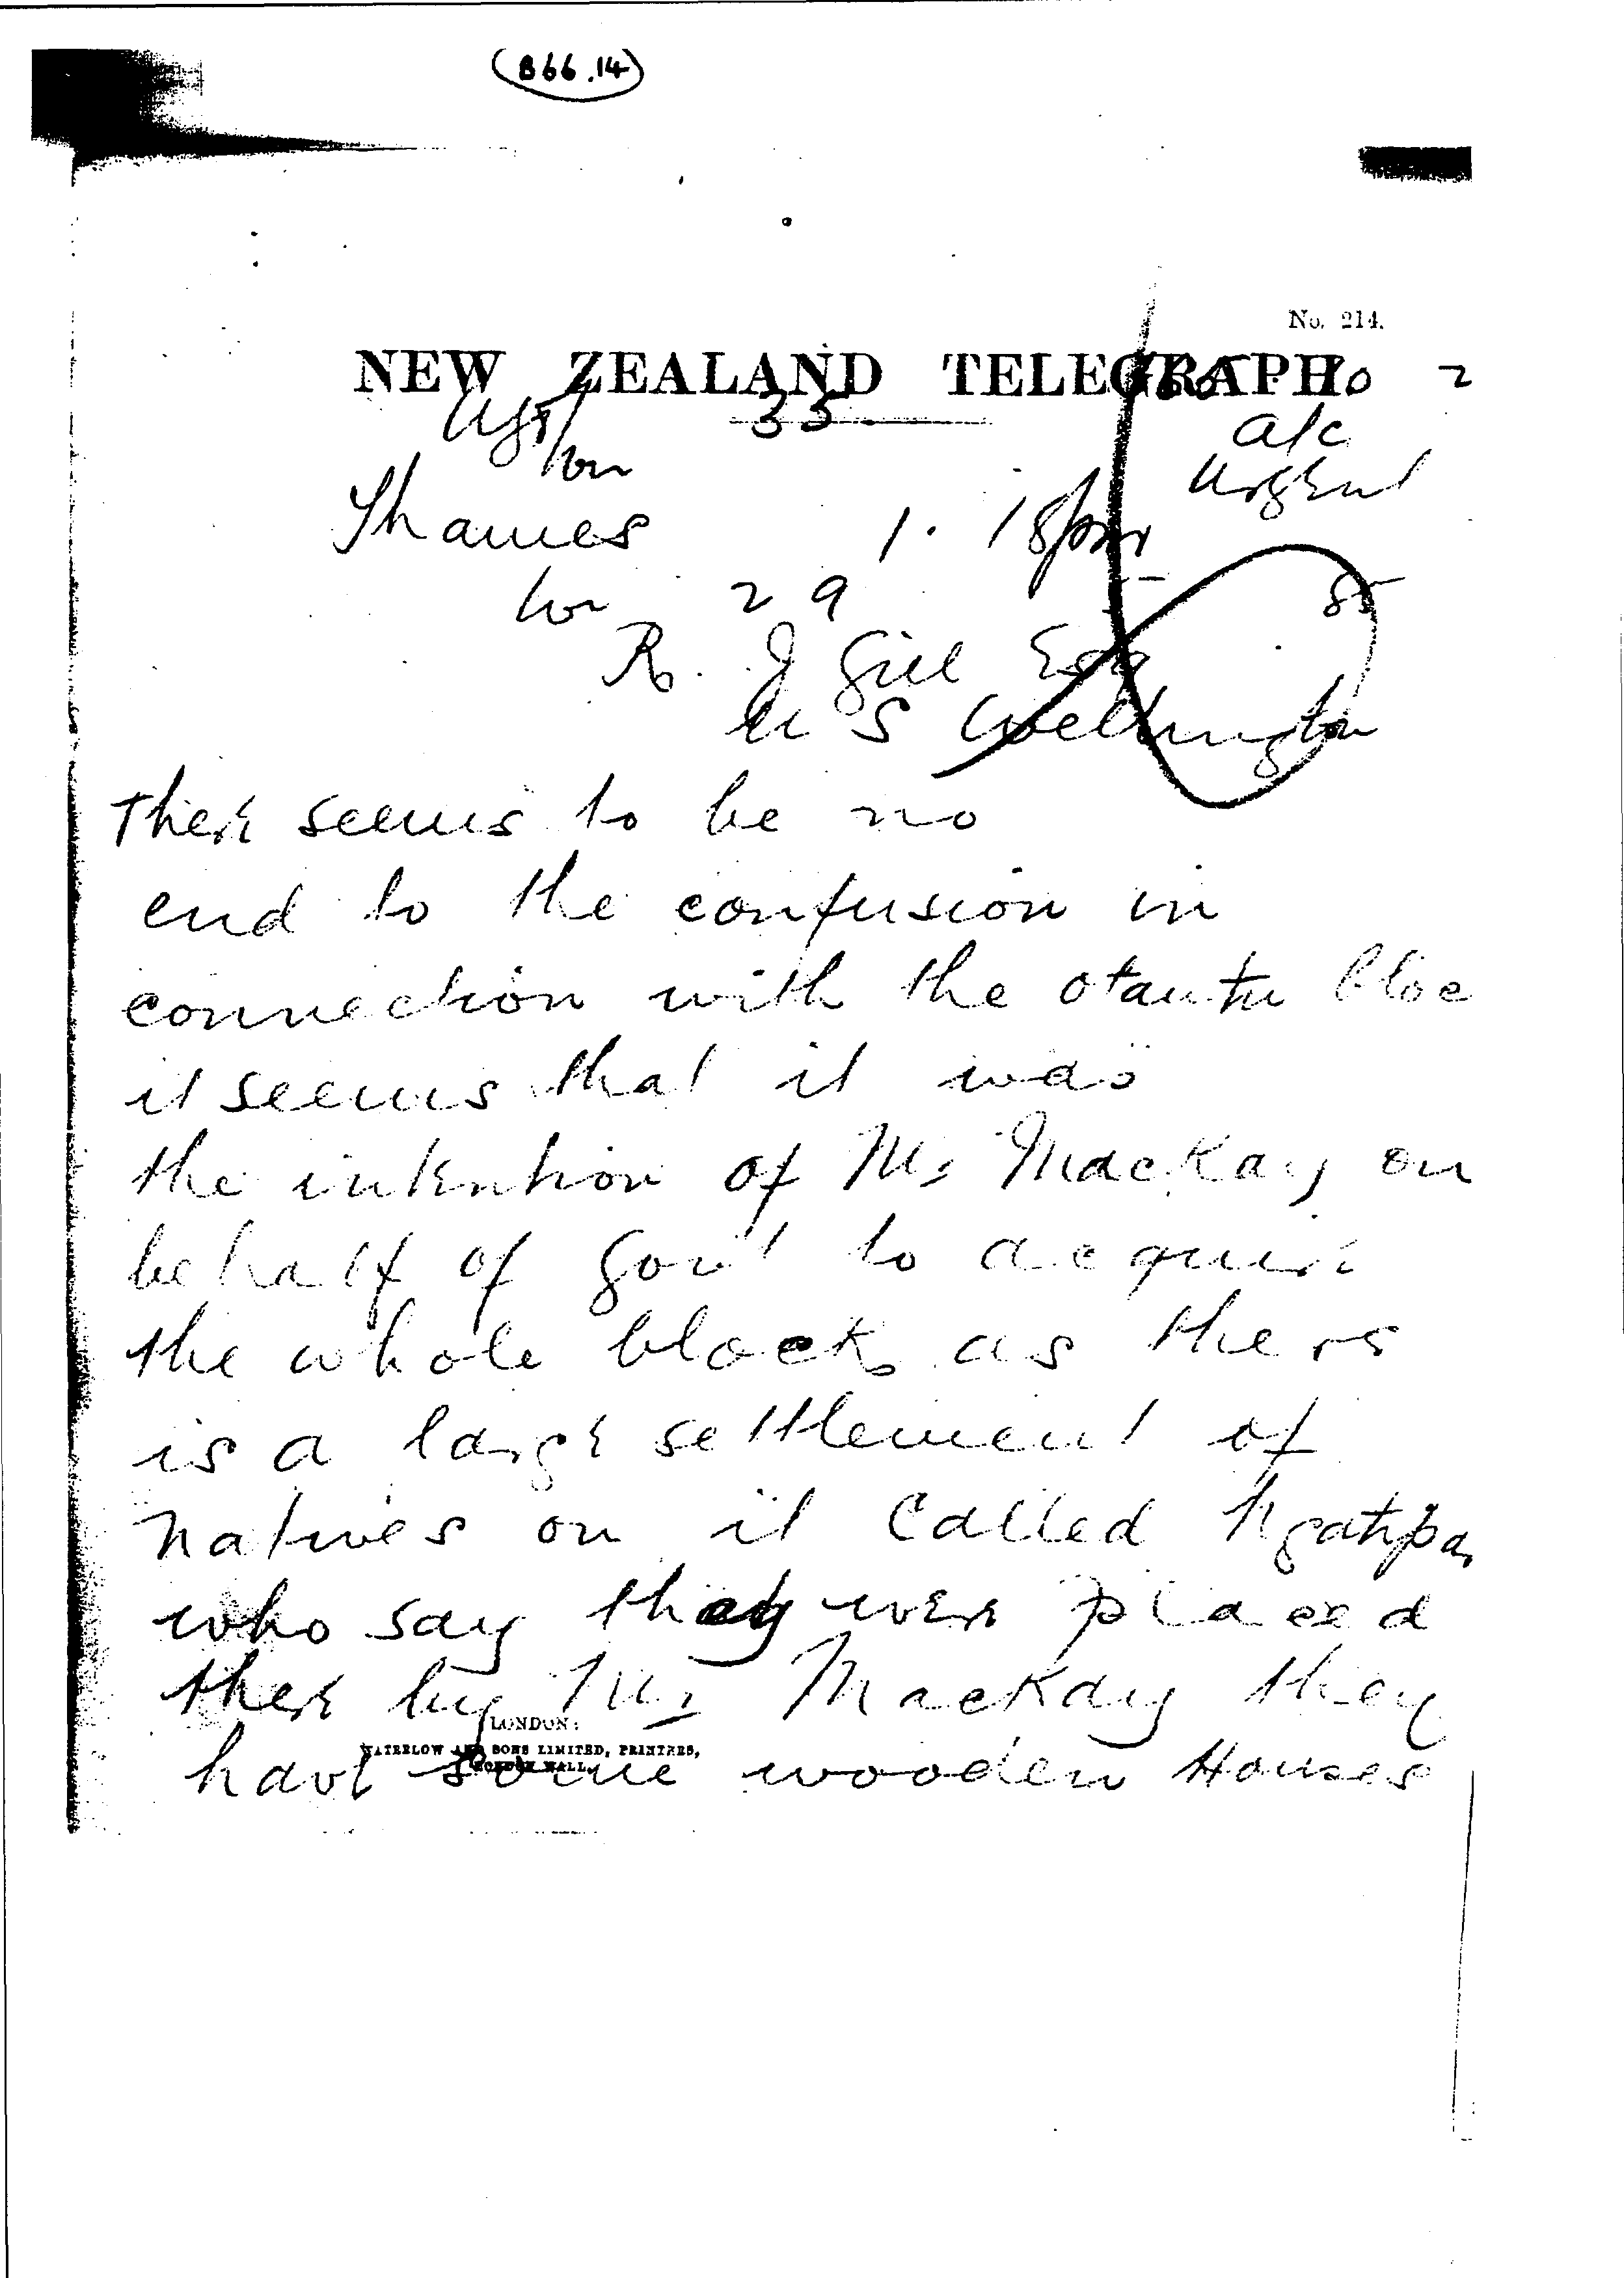 (B66.14)
No. 214.
NEW ZEALAND TELEGRAPH. 2
33
a/c
Urgent
Thames 1. 18pm
29 85
R. J Gill Esq
U S Wellington
There seems to be no
end to the confusion in
connection with the otautu bloc
it seems that it was
the intention of Mr MacKay on
behalf of Gov't to acquire
the whole block as there
is a large settlement of
Natives on it Called Ngatipa
who say they were placed
there by Mr MacKay they
have some wooden Houses
LONDON:
WATERLOW AND SONS LIMITED, PRINTERS,
LONDON WALL.